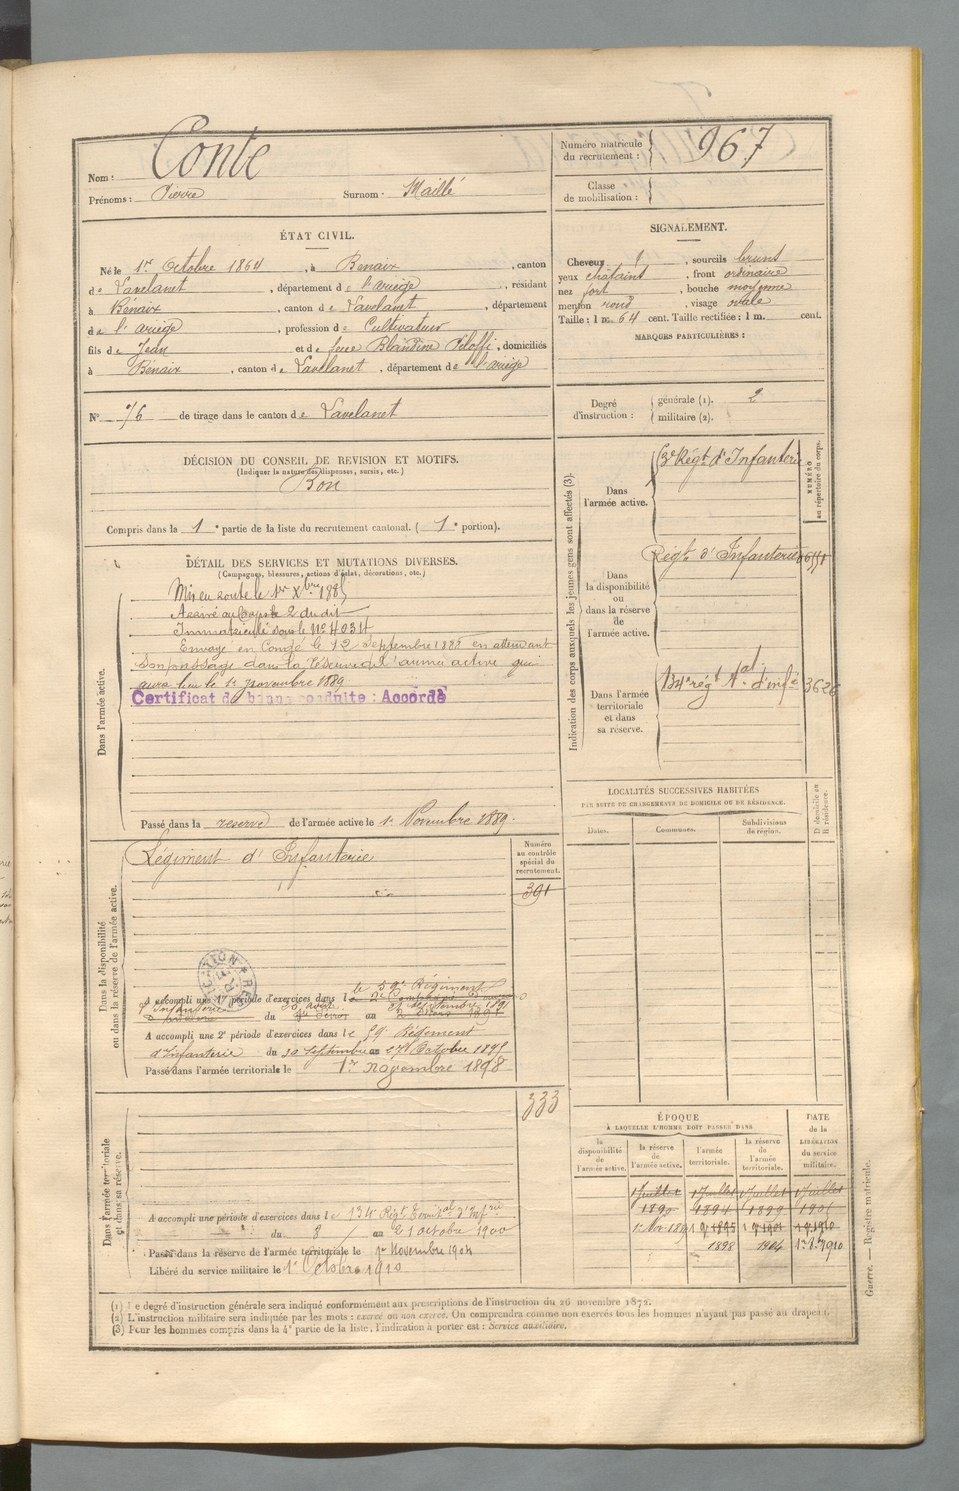 Nom : Conte
Prénoms : Pierre Surnom : Maillé
Numéro matricule du recrutement : 967
Classe de mobilisation :
ÉTAT CIVIL.
Né le 1er Octobre 1864, à Benaix, canton
de Lavelanet, département de l'ariège, résidant
à Bénaix, canton de Lavelanet, département
de l'ariège, profession de Cultivateur
fils de Jean et de feue Blandine Péloffi, domiciliés
à Bénaix, canton de Lavelanet, département de l'ariège
SIGNALEMENT.
Cheveux, sourcils bruns
yeux chatains, front ordinaire
nez fort, bouche moyenne
menton rond, visage ovale
Taille : 1 m. 64 cent. Taille rectifiée : 1 m. cent.
MARQUES PARTICULIÈRES :
N° 76 de tirage dans le canton de Lavelanet
Degré d'instruction : générale (1). 2
militaire (2).
DÉCISION DU CONSEIL DE REVISION ET MOTIFS.
(Indiquer la nature des dispenses, sursis, etc.)
Bon
Compris dans la 1e partie de la liste du recrutement cantonal. (1e portion).
DÉTAIL DES SERVICES ET MUTATIONS DIVERSES.
(Campagnes, blessures, actions d'éclat, décorations, etc.)
Dans l'armée active.
Mis en route le 1er Xbre 1885
Arrivé au Corps le 2 du dit
Immatriculé sous le N° 4034
Envoyé en Congé le 12 Septembre 1888 en attendant
son passage dans la réserve de l'armée active qui
aura lieu le 1er novembre 1889
Certificat de bonne conduite : Accordé
Passé dans la reserve de l'armée active le 1er Novembre 1889.
Indication des corps auxquels les jeunes gens sont affectés (3).
NUMÉRO au répertoire du corps.
Dans l'armée active.
Régt. d'Infanterie
Dans la disponibilité ou dans la réserve de l'armée active.
Régt. d'Infanterie
Dans l'armée territoriale et dans sa réserve.
134e régt tal. d'infie 3626
LOCALITÉS SUCCESSIVES HABITÉES
PAR SUITE DE CHANGEMENTS DE DOMICILE OU DE RÉSIDENCE.
Dates. Communes. Subdivisions de région. D domicile ou R résidence.
Dans la disponibilité ou dans la réserve de l'armée active.
Régiment d'Infanterie
Numéro au contrôle spécial du recrutement.
391
A accompli une 1re période d'exercices dans le 59e Régiment
d'Infanterie du au
A accompli une 2e période d'exercices dans le 59e Régiment
d'Infanterie du 30 Septembre au 27 Octobre 1895
Passé dans l'armée territoriale le 1er novembre 1898
Dans l'armée territoriale et dans sa réserve.
333
A accompli une période d'exercices dans le 134e Régt Territal d'Infrie
du 8 au 21 octobre 1900
Passé dans la réserve de l'armée territoriale le 1er Novembre 1904
Libéré du service militaire le 1er Octobre 1910
ÉPOQUE
À LAQUELLE L'HOMME DOIT PASSER DANS
la disponibilité de l'armée active. la réserve de l'armée active. l'armée territoriale. la réserve de l'armée territoriale. DATE de la LIBÉRATION du service militaire.
1 Juillet 1 Juillet 1 Juillet 1 Juillet
1890 1894 1899
1898 1904
Guerre. — Registre matricule.
(1) Le degré d'instruction générale sera indiqué conformément aux prescriptions de l'instruction du 26 novembre 1872.
(2) L'instruction militaire sera indiquée par les mots : exercé ou non exercé. On comprendra comme non exercés tous les hommes n'ayant pas passé au drapeau.
(3) Pour les hommes compris dans la 4e partie de la liste, l'indication à porter est : Service auxiliaire.